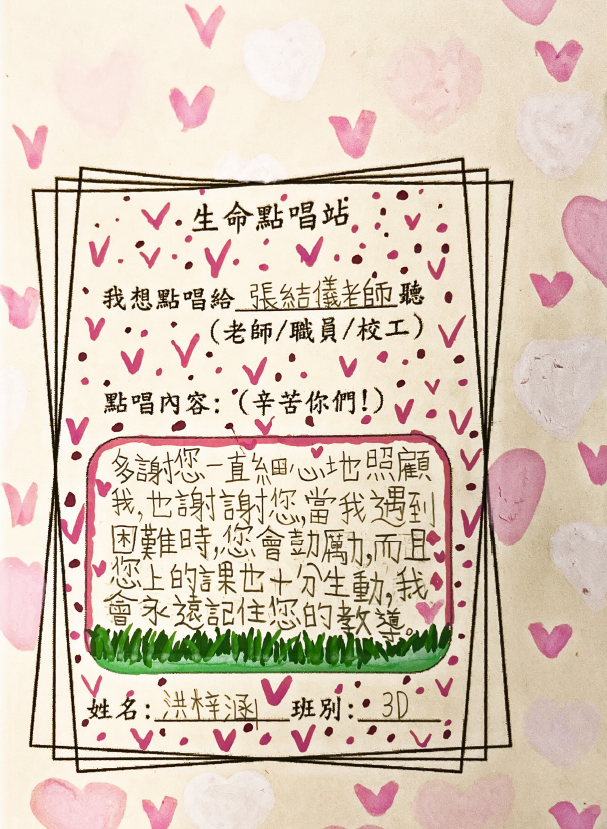 生命點唱站
我想點唱給 張結儀老師 聽
（老師/職員/校工）
點唱內容：（辛苦你們！）
多謝您一直細心地照顧
我，也謝謝您，當我遇到
困難時，您會鼓勵，而且
您上的課也十分生動，我
會永遠記住您的教導。
姓名：洪梓涵 班別：3D